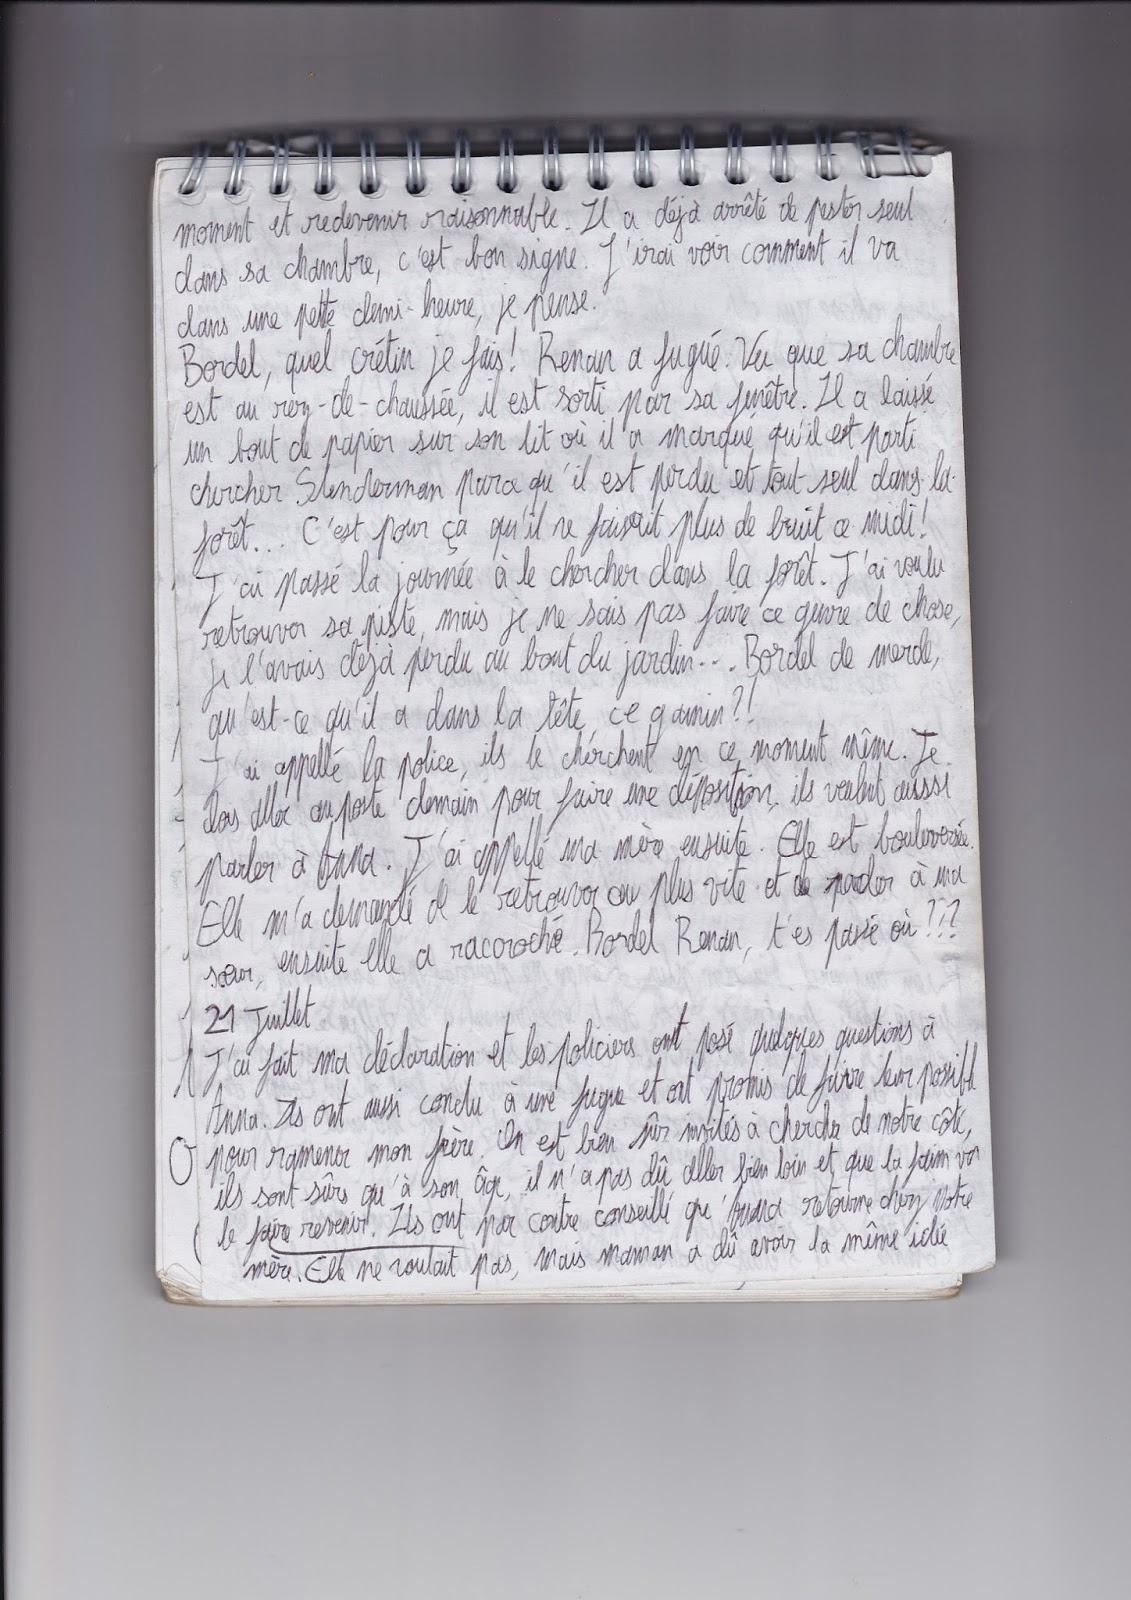 moment et redevenir raisonnable. Il a déjà arrêté de pester seul
dans sa chambre, c'est bon signe. J'irai voir comment il va
dans une petite demi-heure, je pense.
Bordel, quel crétin je fais! Renan a fugué. Vu que sa chambre
est au rez-de-chaussée, il est sorti par sa fenêtre. Il a laissé
un bout de papier sur son lit où il a marqué qu'il est parti
chercher Slenderman parce qu'il est perdu et tout seul dans la
forêt... C'est pour ça qu'il ne faisait plus de bruit ce midi!
J'ai passé la journée à le chercher dans la forêt. J'ai voulu
retrouver sa piste, mais je ne sais pas faire ce genre de chose,
je l'avais déjà perdu au bout du jardin... Bordel de merde,
qu'est-ce qu'il a dans la tête ce gamin?!
J'ai appellé la police, ils le cherchent en ce moment même. Je
dois aller au poste demain pour faire une déposition, ils veulent aussi
parler à Anna. J'ai appellé ma mère ensuite. Elle est bouleversée.
Elle m'a demandé de le retrouver au plus vite et de parler à ma
sœur, ensuite elle a racoroché. Bordel Renan, t'es passé où???
21 Juillet
J'ai fait ma déclaration et les policiers ont posé quelques questions à
Anna. Ils ont aussi conclu à une fugue et ont promis de faire leur possible
pour ramener mon frère. On est bien sûr invités à chercher de notre côté,
ils sont sûrs qu'à son âge, il n'a pas dû aller bien loin et que la faim va
le faire revenir. Ils ont par contre conseillé qu'Anna retourne chez notre
mère. Elle ne voulait pas, mais maman a dû avoir la même idée